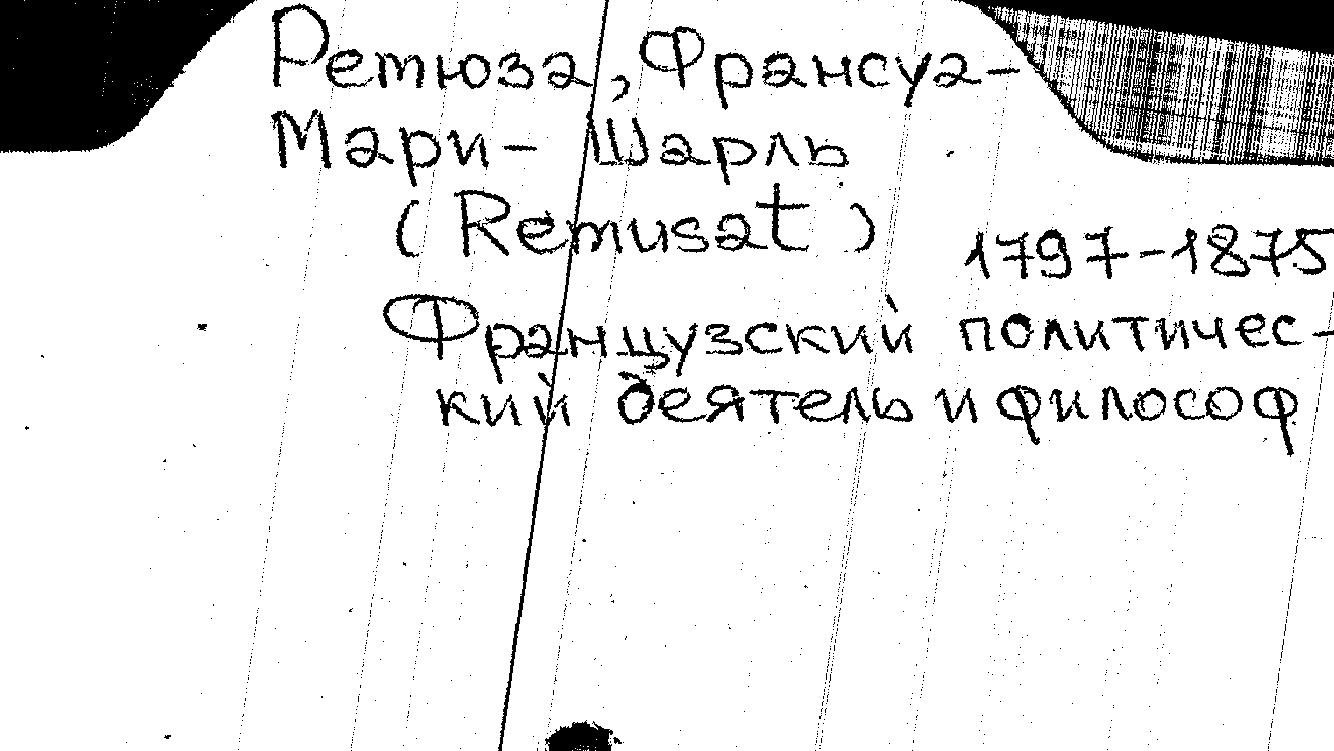 Ретюза, Франсуа-
Мари- Шарль
(Remusat)
1797-1875
Французский политичес-
кий деятель и философ